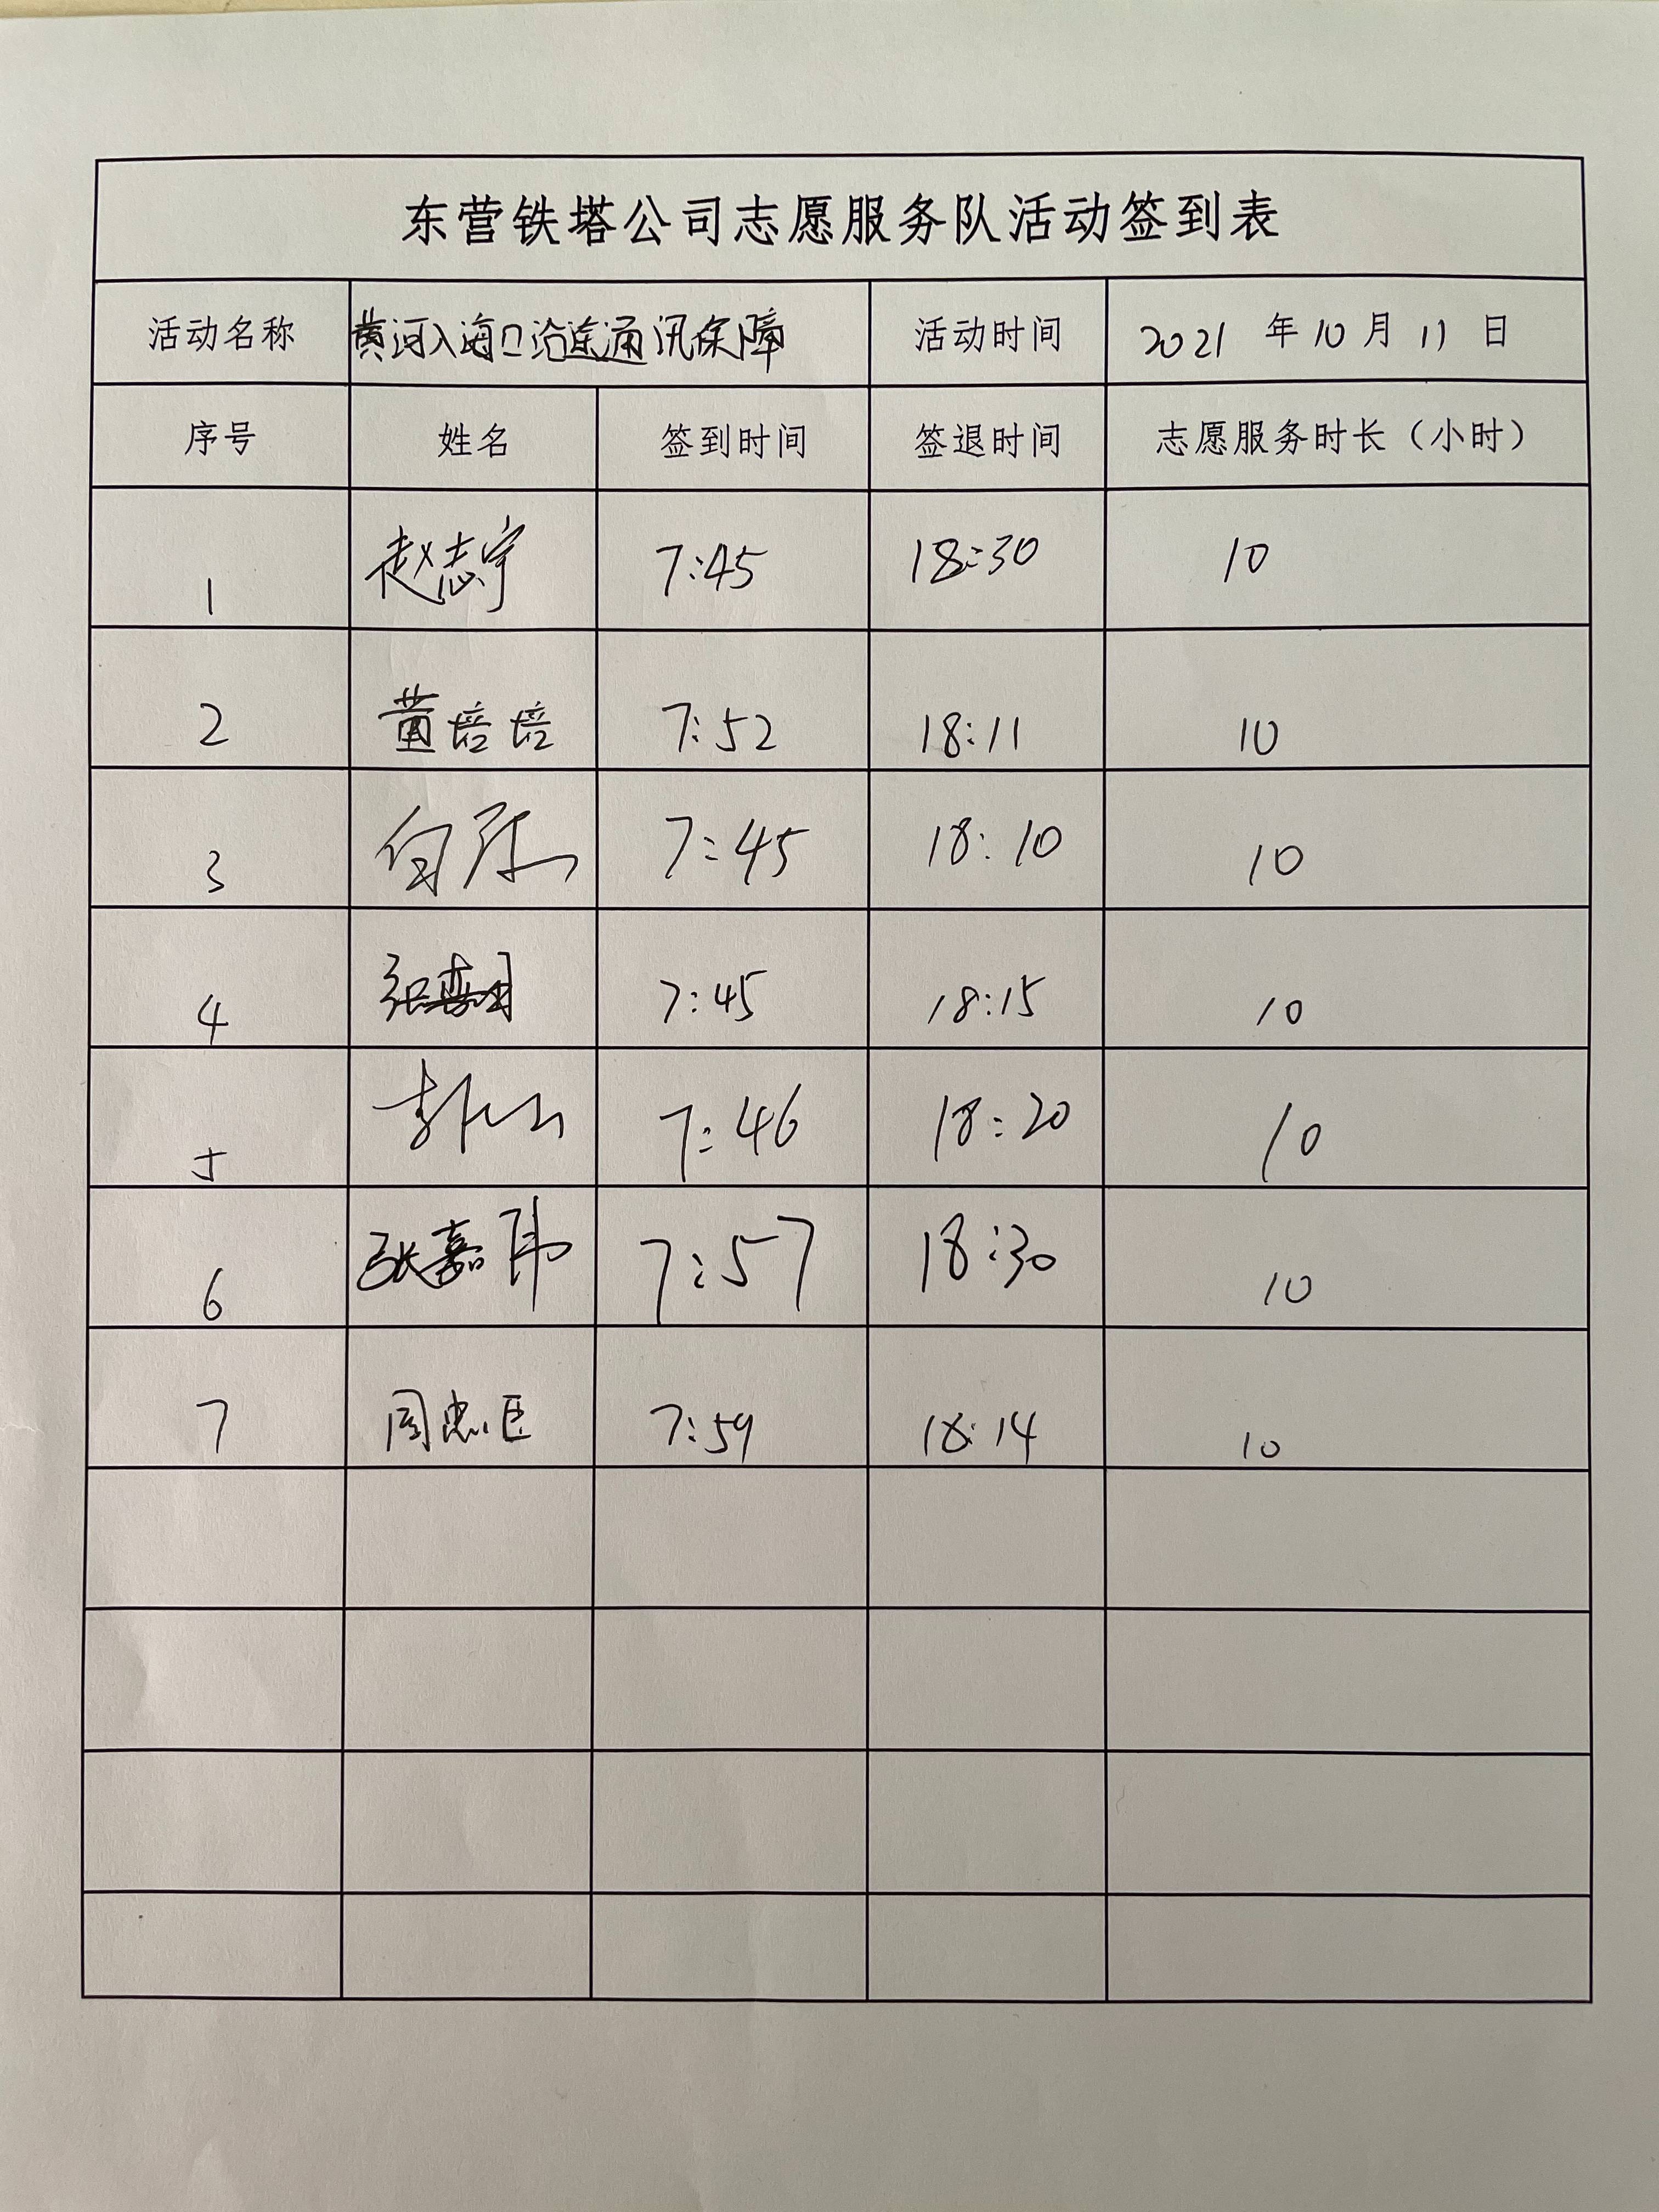 东营铁塔公司志愿服务队活动签到表
活动名称 黄河入海口沿途通讯保障 活动时间 2021 年 10 月 11 日
序号 姓名 签到时间 签退时间 志愿服务时长（小时）
1 赵志宇 7:45 18:30 10
2 黄培培 7:52 18:11 10
3 7:45 18:10 10
4 张 7:45 18:15 10
5 7:46 18:20 10
6 张嘉伟 7:57 18:30 10
7 周忠臣 7:59 18:14 10